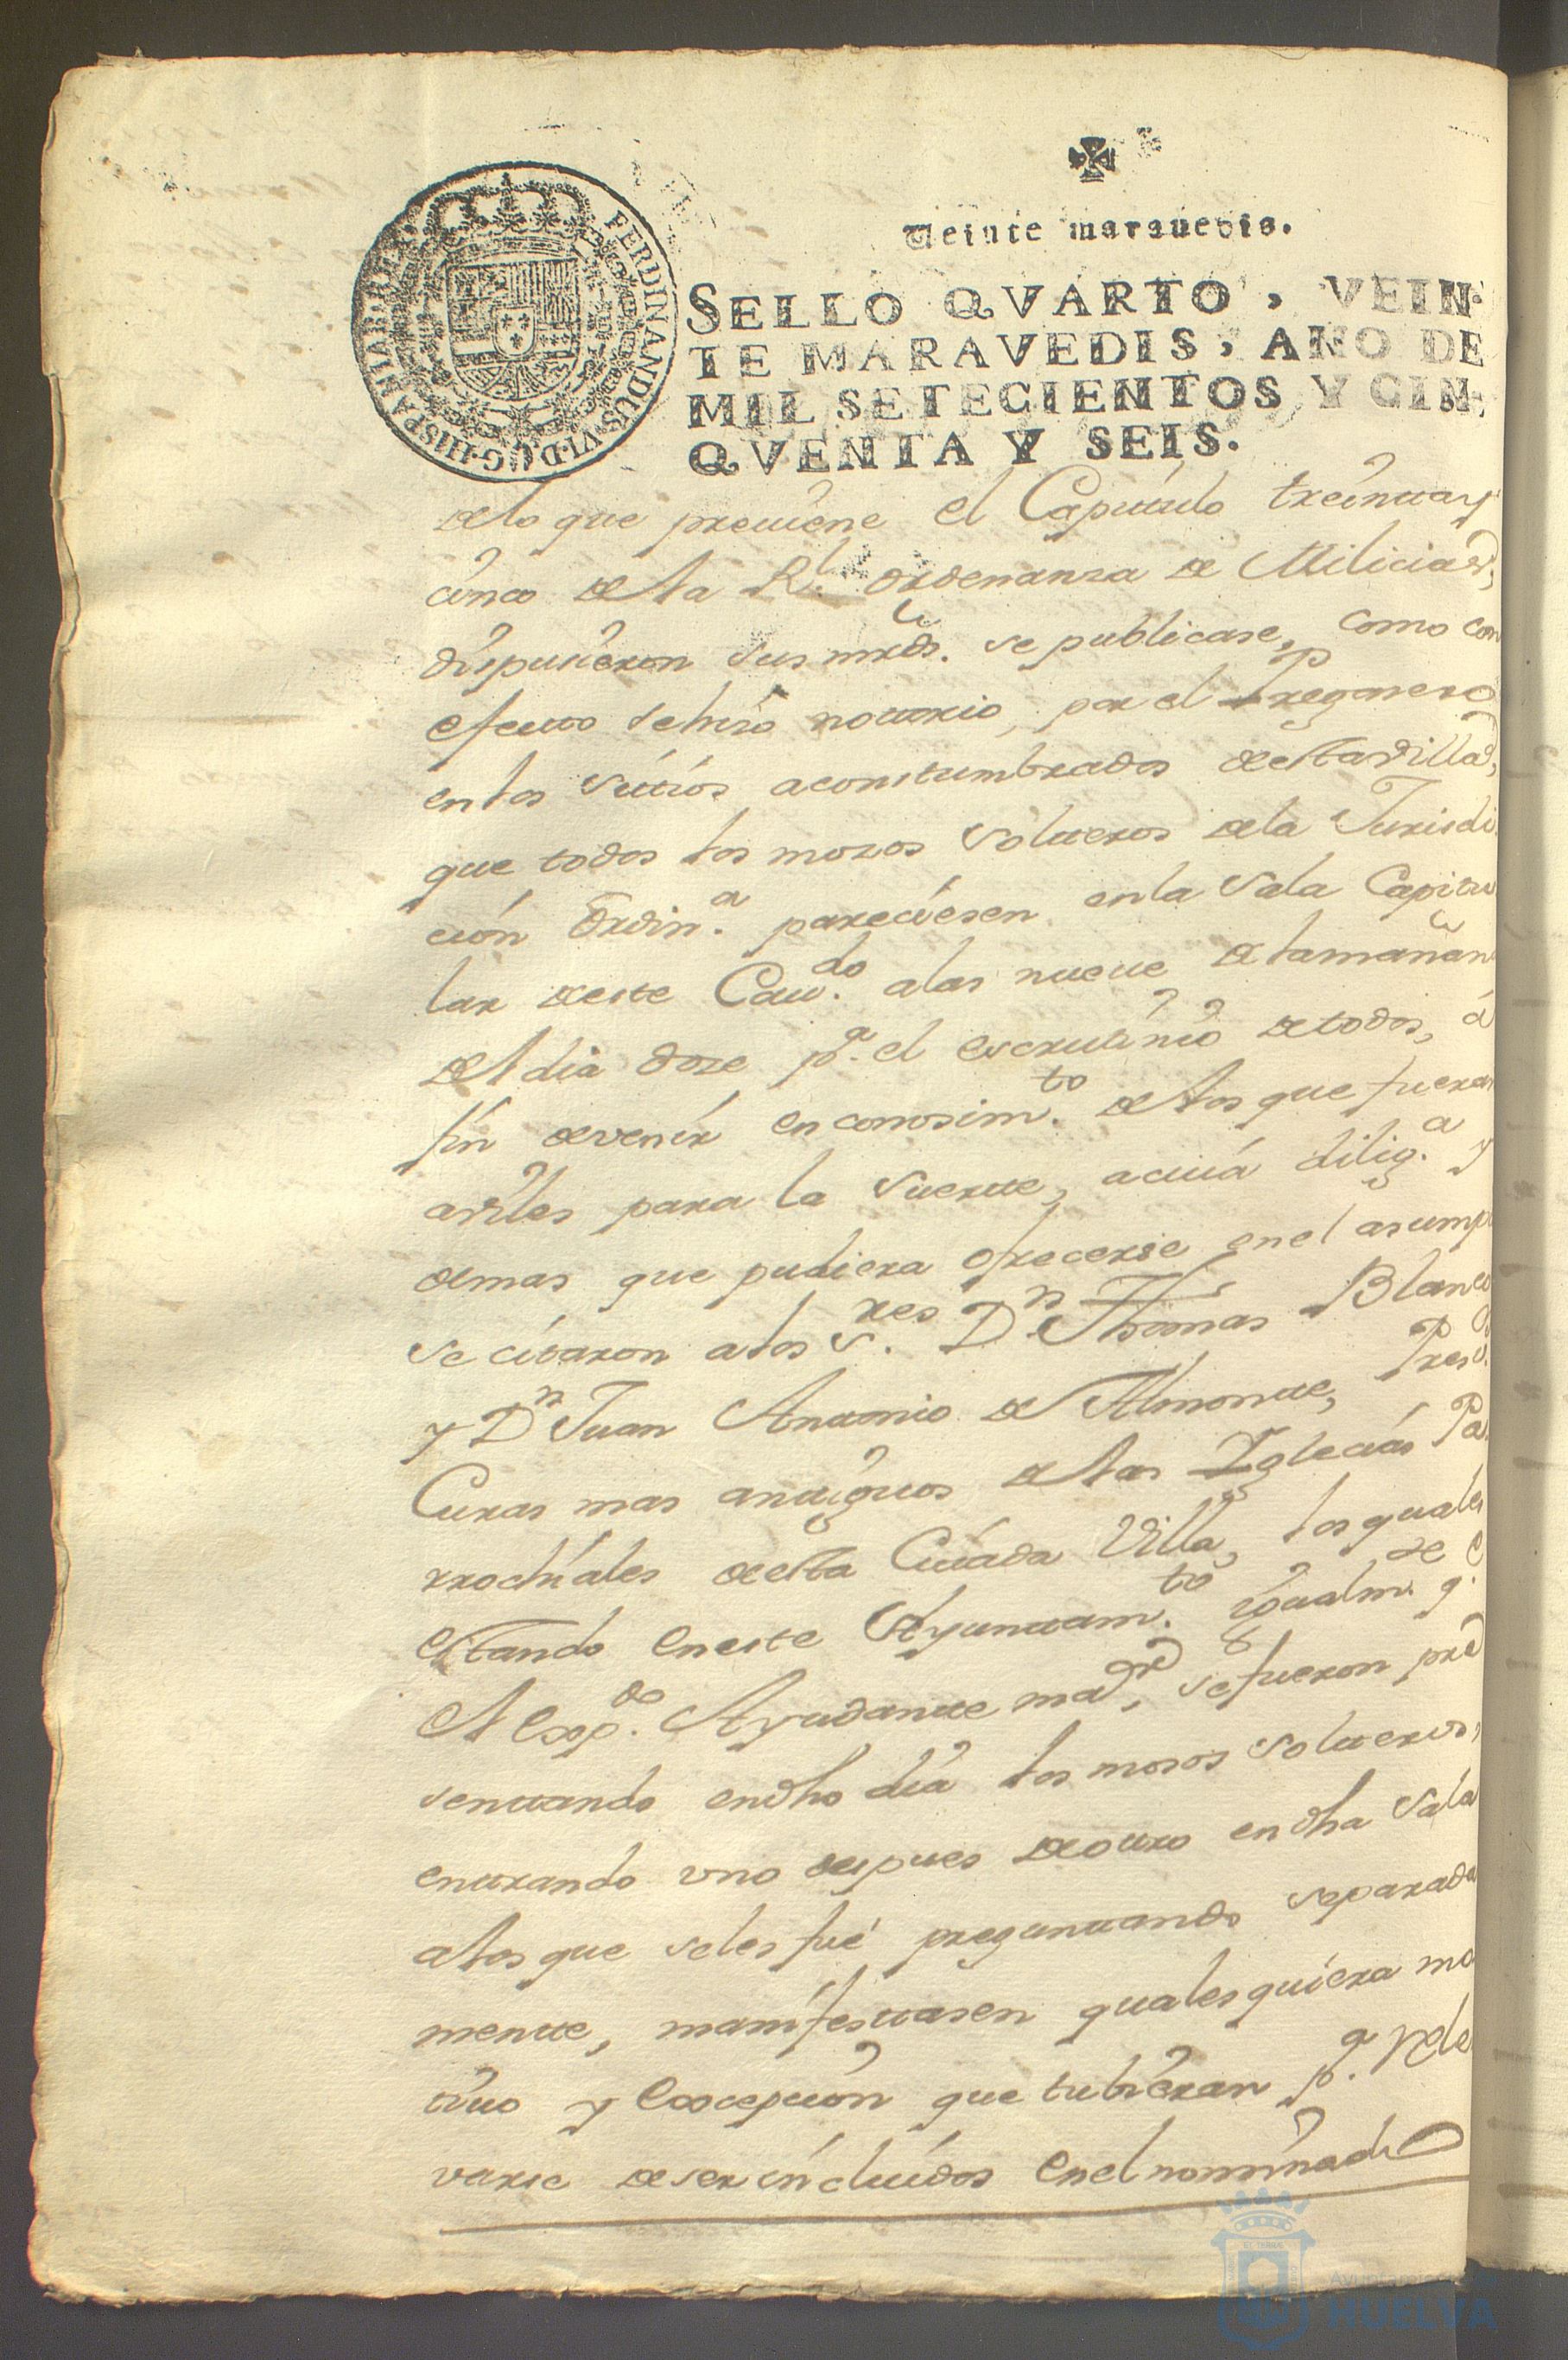 Veinte maravedis.
SELLO QVARTO, VEIN-
TE MARAVEDIS, AÑO DE
MIL SETECIENTOS Y CIN-
QVENTA Y SEIS.
FERDINANDUS·VI·D·G·HISPANIAR·REX·
delo que preuiene el Capitulo treinta y
cinco dela Rl. ordenanza de Milicias,
dispusieron sus mrds. se publicase, como con
efecto sehizo notorio, por el Pregonero
enlos sitios acostumbrados destavilla,
que todos los mozos solteros dela Jurisdi
cion Ordin.a pareciesen enla Sala Capitu
lar deeste Cau.do alas nueue delamañan
deldia doze p.a el escrutinio detodos, á
fin devenir enconosim.to delos que fueran
aviles para la suerte, acuia dilig.a y
demas que pudiera ofrecerse enel asump
se citaron alos S.res Dn Thomas Blanco
y Dn Juan Antonio de Almonte, Pres
Curas mas antiguos delas Iglecias Pa
rrochiales deesta Citada Villa, losquales
estando eneste Ayuntam.to igualm.
el Exp.do Ayudante maor, sefueron pre
sentando endho dia los mozos solteros,
entrando vno despues deotro endha Sala
alos que seles fué preguntando separada
mente, manifestasen qualesquiera mo
tiuo y Excepcion que tubieran p.a Rele
varse deser incluidos enel nominado
Ayuntamiento de
HUELVA